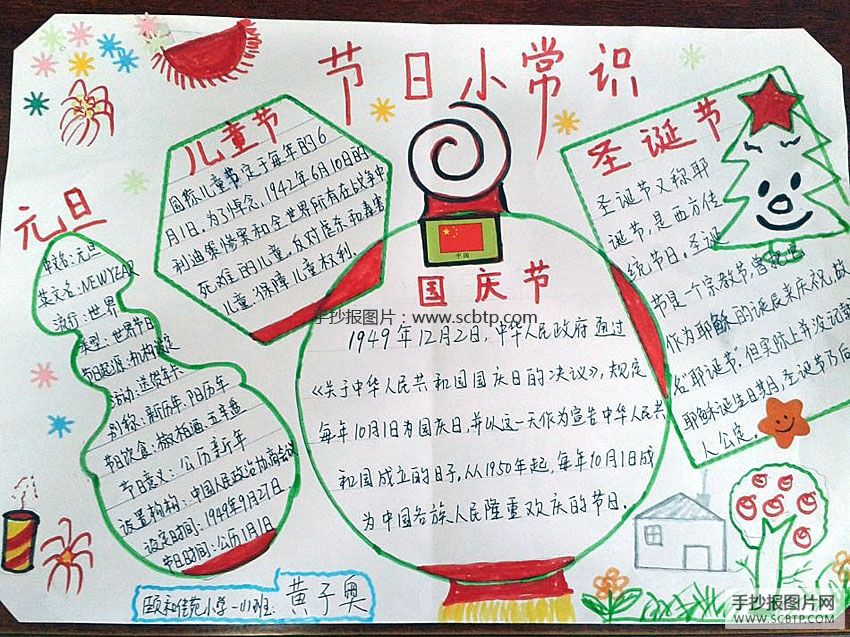 节日小常识
元旦
中名：元旦
英文名：NEWYEAR
流行：世界
类型：世界节日
节日起源：机构设定
活动：送贺年卡
别称：新历年、阳历年
节日饮食：椒柏酒 五辛盘
节日意义：公历新年
设置机构：中国人民政治协商会议
设定时间：1949年9月27日
节日时间：公历1月1日
儿童节
国际儿童节定于每年的6
月1日。为了悼念，1942年6月10日的
利迪策惨案和全世界所有在战争中
死难的儿童，反对虐杀和毒害
儿童，保障儿童权利。
中国
国庆节
1949年12月2日，中华人民政府通过
《关于中华人民共和国国庆日的决议》，规定
每年10月1日为国庆日，并以这一天作为宣告中华人民共
和国成立的日子。从1950年起，每年10月1日成
为中国各族人民隆重欢庆的节日。
圣诞节
圣诞节又称耶
诞节，是西方传
统节日。圣诞
节是一个宗教节，曾把它
作为耶稣的诞辰来庆祝，故
名"耶诞节"。但实际上并没记载
耶稣诞生日其月，圣诞节乃后
人公定。
颐和佳苑小学一(1)班：黄子奥
手抄报图片：www.scbtp.com
手抄报图片网
WWW.SCBTP.COM